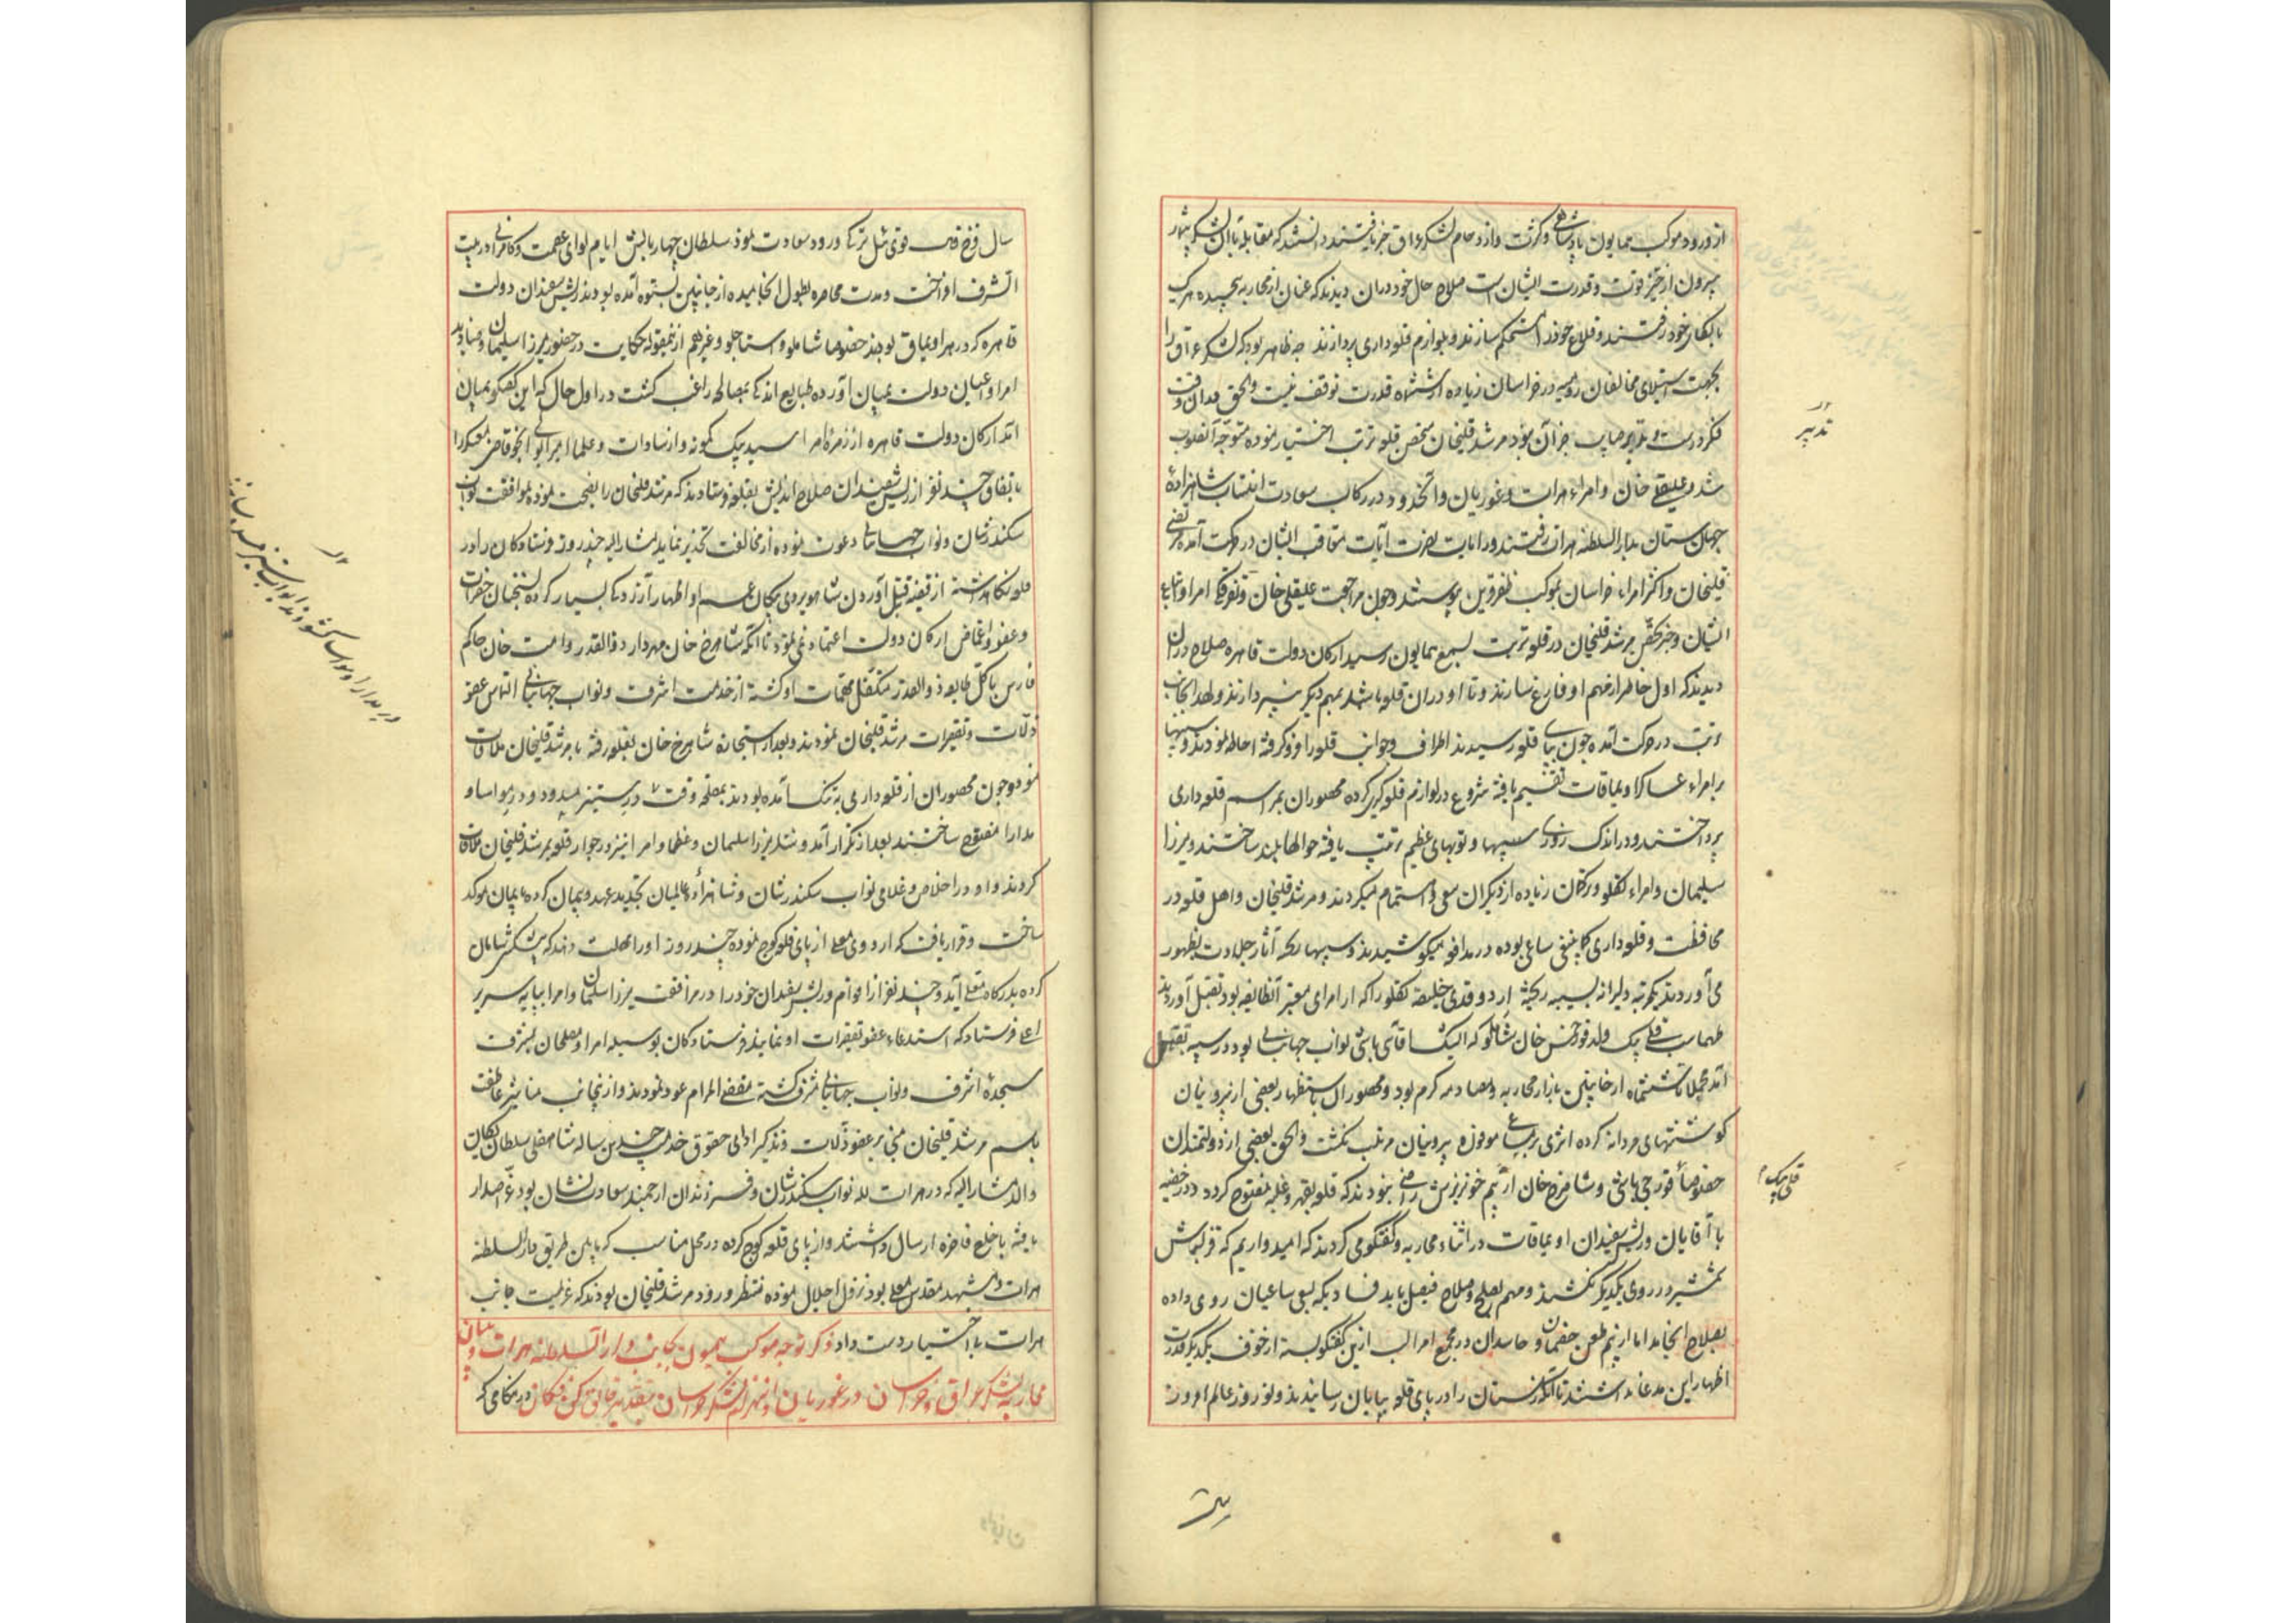 از ورود موکب همایون پادشاهی و کثرت و ازدحام لشکر عراق خبر یافتند دانستند که مقابله با آن لشکر بیشمار
بیرون از حیز قوت و قدرت ایشان است صلاح حال خود در آن دیدند که عنان از محاربه پیچیده هر یک
بالکای خود رفتند و قلاع خود را مستحکم سازند و بلوازم قلعه داری پردازند چه ظاهر بود که لشکر عراق را
بجهت استیلای مخالفان رومیه در خراسان زیاده از ششماه قدرت توقف نیست و الحق در آن وقت
فکر درست و تدبیر صایب جز آن نبود مرشد قلیخان تحصن قلعه تربت اختیار نموده متوجه آنصوب
شد و علیقلی خان و امراء هرات و غوریان و آنحدود در رکاب سعادت انتساب شاهزاده
جهان ستان بدار السلطنه هرات رفتند و رایات نصرت آیات متعاقب ایشان در حرکت آمده مرتضی
قلیخان و اکثر امراء خراسان بموکب ظفرقرین پیوستند و چون مراجعت علیقلی خان و تفرقه امرا و اتباع
ایشان و خبر تحصن مرشد قلیخان در قلعه تربت بسمع همایون رسید ارکان دولت قاهره صلاح در آن
دیدند که اول خاطر از مهم او فارغ سازند و تا او در آن قلعه باشد بمهم دیگر نپردازند و لهذا بجانب
تربت در حرکت آمده چون بپای قلعه رسیدند اطراف و جوانب قلعه را فرو گرفته احاطه نمودند و سیبها
بر امراء عساکر و اویماقات تقسیم یافته شروع در لوازم قلعه گیری کرده محصوران بمراسم قلعه داری
پرداختند و در اندک روزی سیبها و توبهای عظیم ترتیب یافته حوالهای بلند ساختند و میرزا
سلیمان و امراء تکلو و ترکمان زیاده از دیگران سعی و اهتمام میکردند و مرشد قلیخان و اهل قلعه در
محافظت و قلعه داری کما ینبغی ساعی بوده در مدافعه میکوشیدند و سیبها ریخته آثار جلادت بظهور
می آوردند یکمرتبه دلیرانه بسیبه ریخته اردوغدی خلیفه تکلو را که از امرای معتبر آنطایفه بود بقتل آوردند
طهماسب قلی بیک ولد قورخمس خان شاملو که ایشک آقاسی باشی نواب جهانبانی بود در سیبه بقتل
آمد مجملا تا ششماه از جانبین بازار محاربه و مصادمه گرم بود و محصوران باستظهار بعضی از بیرونیان
کوششهای مردانه کرده اثری بر سعی موفوره بیرونیان مرتب نگشت و الحق بعضی از دولتمندان
خصوصا قورچی باشی و شاهرخ خان از بیم خونریزش راضی نبودند که قلعه بقهر و غلبه مفتوح گردد و در خفیه
با آقایان و ریش سفیدان اویماقات در اثناء محاربه و گفتگو می کردند که امیدواریم که قزلباش
شمشیر در روی یکدیگر نکشند و مهم بصلح و صلاح فیصل یابد فسادی که بسعی ساعیان روی داده
بصلاح انجامد اما از بیم طعن خصمان و حاسدان در مجمع امرا لب ازین گفتگو بسته از خوف یکدیگر قدرت
اظهار این مدعا نداشتند تا آنکه زمستان را در پای قلعه بپایان رسانیدند و نوروز عالم افروز
تدبیر
قلی بیک
سال فرخ فال قوی ئیل ترکی ورود سعادت نمود سلطان چهار بالش ایام لوای عظمت و کامرانی در بیت
الشرف افراخت و مدت محاصره بطول انجامیده از جانبین بستوه آمده بودند ریش سفیدان دولت
قاهره که در هر اویماق بودند خصوصا شاملو و استاجلو و غیرهم ازینمقوله حکایت در حضور میرزا سلیمان و صنادید
امرا و اعیان دولت بمیان آورده طبایع اندکی بمصالحه راغب گشت در اول حال که این گفتگو بمیان
آمد ارکان دولت قاهره از زمره امرا سید بیک کمونه و از سادات و علما میر ابوالولی انجو قاضی معسکر را
باتفاق چند نفر از ریش سفیدان صلاح اندیش بقلعه فرستادند که مرشد قلیخان را نصیحت نموده بموافقت نواب
سکندرشان و نواب جهانبانی دعوت نموده از مخالفت تحذیر نمایند مشارالیه چند روز فرستادگان را در
قلعه نگاهداشته از قضیه قتل آوردن شاهویردی بیکان عم او اظهار آزردگی بسیار کرده بسخنان حضرات
و عفو و اغماض ارکان دولت اعتماد نمی نمود تا آنکه شاهرخ خان مهردار ذوالقدر و امت خان حاکم
فارس با کل طایفه ذوالقدر متکفل مهمات او گشته از خدمت اشرف و نواب جهانبانی التماس عفو
زلات و تقصیرات مرشد قلیخان نمودند و بعد از استجازه شاهرخ خان بقلعه رفته با مرشد قلیخان ملاقات
نمود و چون محصوران از قلعه داری به تنگ آمده بودند بمصلحت وقت در ستیز مسدود و در مواسا و
مدارا مفتوح ساختند بعد از تکرار آمد و شد میرزا سلیمان و عظما و امرا نیز در جوار قلعه بمرشد قلیخان ملاقات
کردند و او در اخلاص و غلامی نواب سکندرشان و شاهزاده عالمیان تجدید عهد و پیمان کرده بایمان موکد
ساخت و قرار یافت که اردوی معلی از پای قلعه کوچ نموده چند روز او را مهلت دهند که پیشکش شایان
کرده بدرگاه معلی آید و چند نفر از اقوام و ریش سفیدان خود را در مرافقت میرزا سلیمان و امرا بپایه سریر
اعلی فرستاد که استدعاء عفو تقصیرات او نمایند فرستادگان بوسیله امرا و مصلحان بشرف
سجده اشرف و نواب جهانبانی مشرف گشته مقضی المرام عود نمودند و ازینجانب مناشیر عاطفت
باسم مرشد قلیخان مبنی بر عفو زلات و تذکیر ادای حقوق خدمت چندین ساله شاهقلی سلطان یکان
والد مشارالیه که در هرات لله نواب سکندرشان و فرزندان ارجمند سعادت نشان بود عز اصدار
یافته با خلع فاخره ارسال داشتند و از پای قلعه کوچ کرده در محل مناسب که مابین طریق دار السلطنه
هرات و مشهد مقدس معلی بود نزول اجلال نموده منتظر ورود مرشد قلیخان بودند که عزیمت جانب
هرات باختیار دست داد ذکر توجه موکب همیون بجانب دار السلطنه هرات و بیان
محاربه لشکر عراق و خراسان در غوریان و انهزام لشکر خراسان بتقدیر خالق کن فکان در هنگامی که